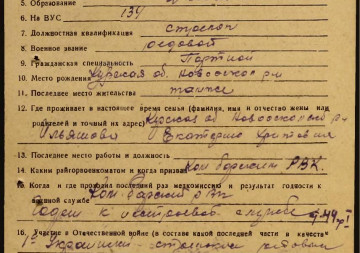 5. Образование
6. На ВУС 134
7. Должностная квалификация стрелок
8. Военное звание рядовой
9. Гражданская специальность Портной
10. Место рождения Курская об. Новооскол р-н
11. Последнее место жительства также
12. Где проживает в настоящее время семья (фамилия, имя и отчество жены или
родителей и точный их адрес) Курская об Новооскольс р-н
Ильяшова Екатерина
13. Последнее место работы и должность
14. Каким райгорвоенкоматом и когда призван РВК.
15. Когда и где проходил последний раз медкомиссию и результат годности к
военной службе
Годен к нестроевой службе
16. Участие в Отечественной войне (в составе какой последней части и в качестве
1й Украинский